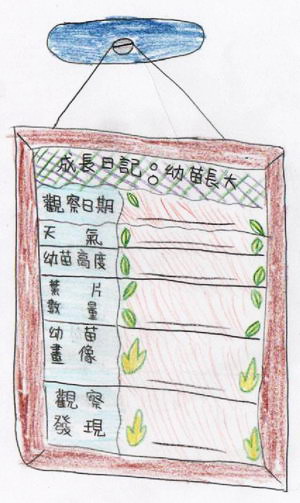 成長日記:幼苗長大
觀察日期
天氣
幼苗高度
葉片
數量
幼苗
畫像
觀察
發現